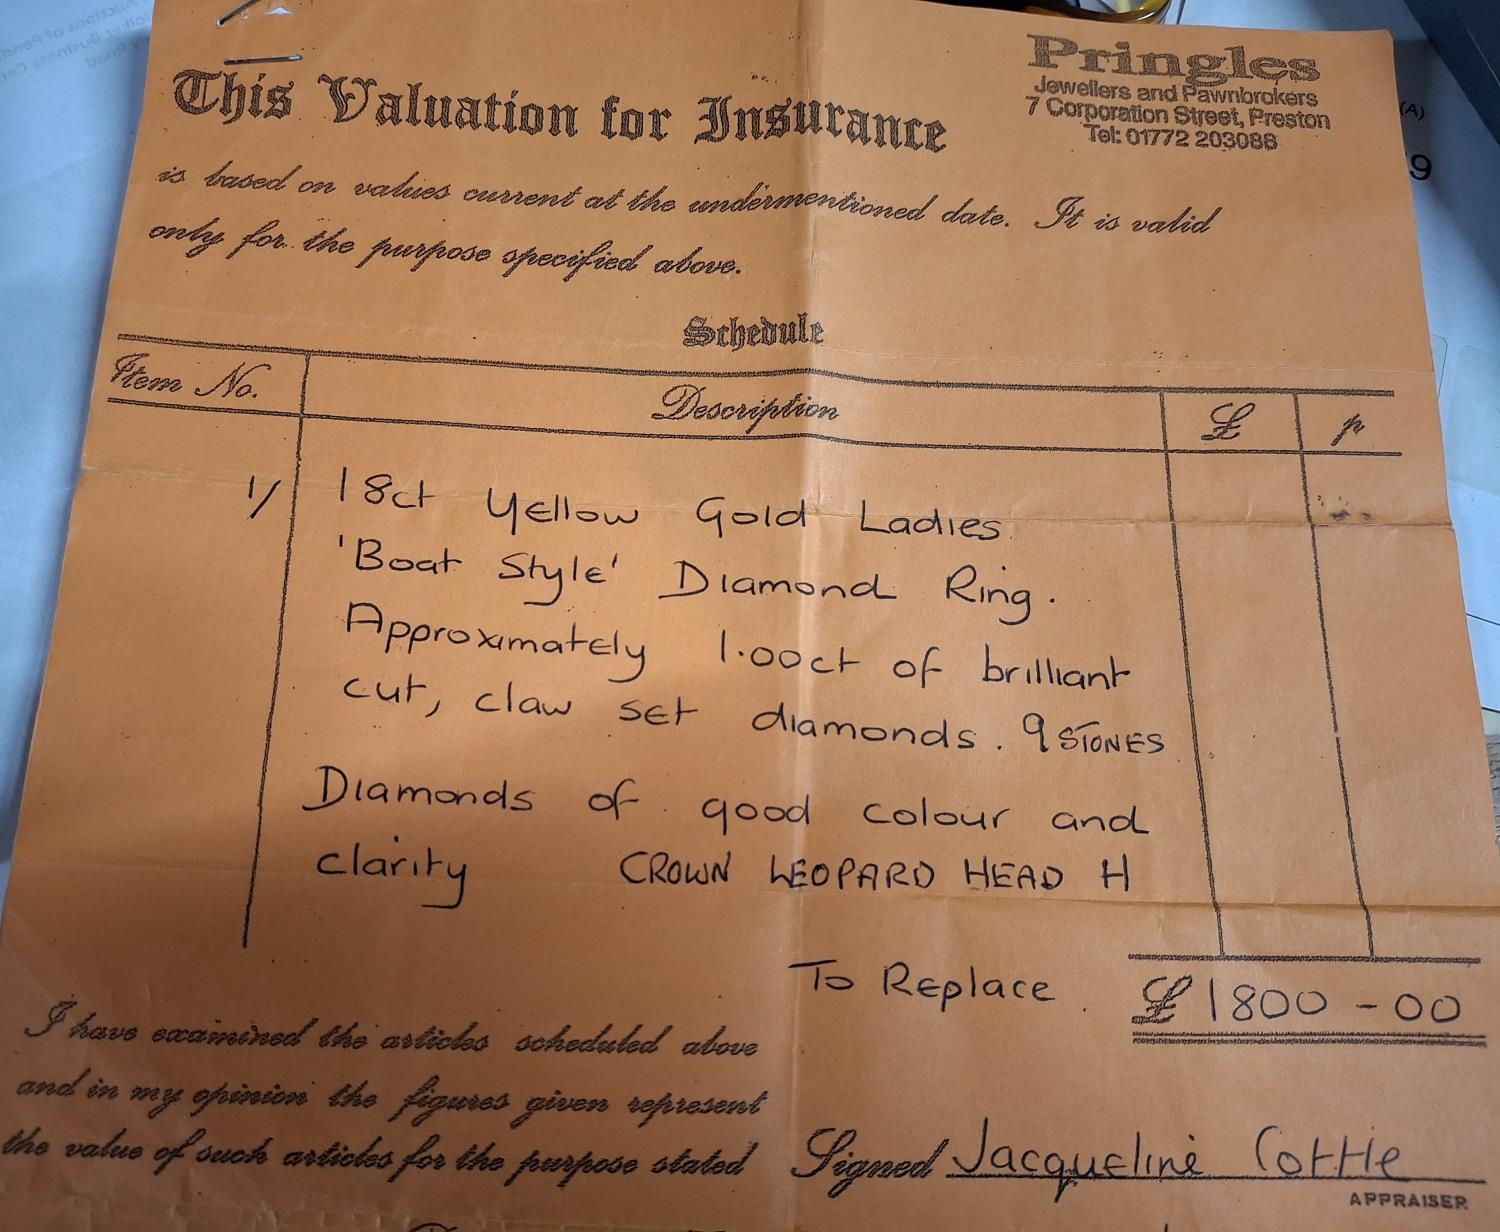 This Valuation for Insurance
Pringles
Jewellers and Pawnbrokers
7 Corporation Street, Preston
Tel: 01772 203088
(A)
9
is based on values current at the undermentioned date. It is valid
only for the purpose specified above.
Schedule
Item No.
Description
£
p
1/
18ct Yellow Gold Ladies
'Boat Style' Diamond Ring.
Approximately 1.00ct of brilliant
cut, claw set diamonds. 9 STONES
Diamonds of good colour and
clarity CROWN LEOPARD HEAD H
To Replace £1800-00
I have examined the articles scheduled above
and in my opinion the figures given represent
the value of such articles for the purpose stated
Signed Jacqueline Cottle
APPRAISER